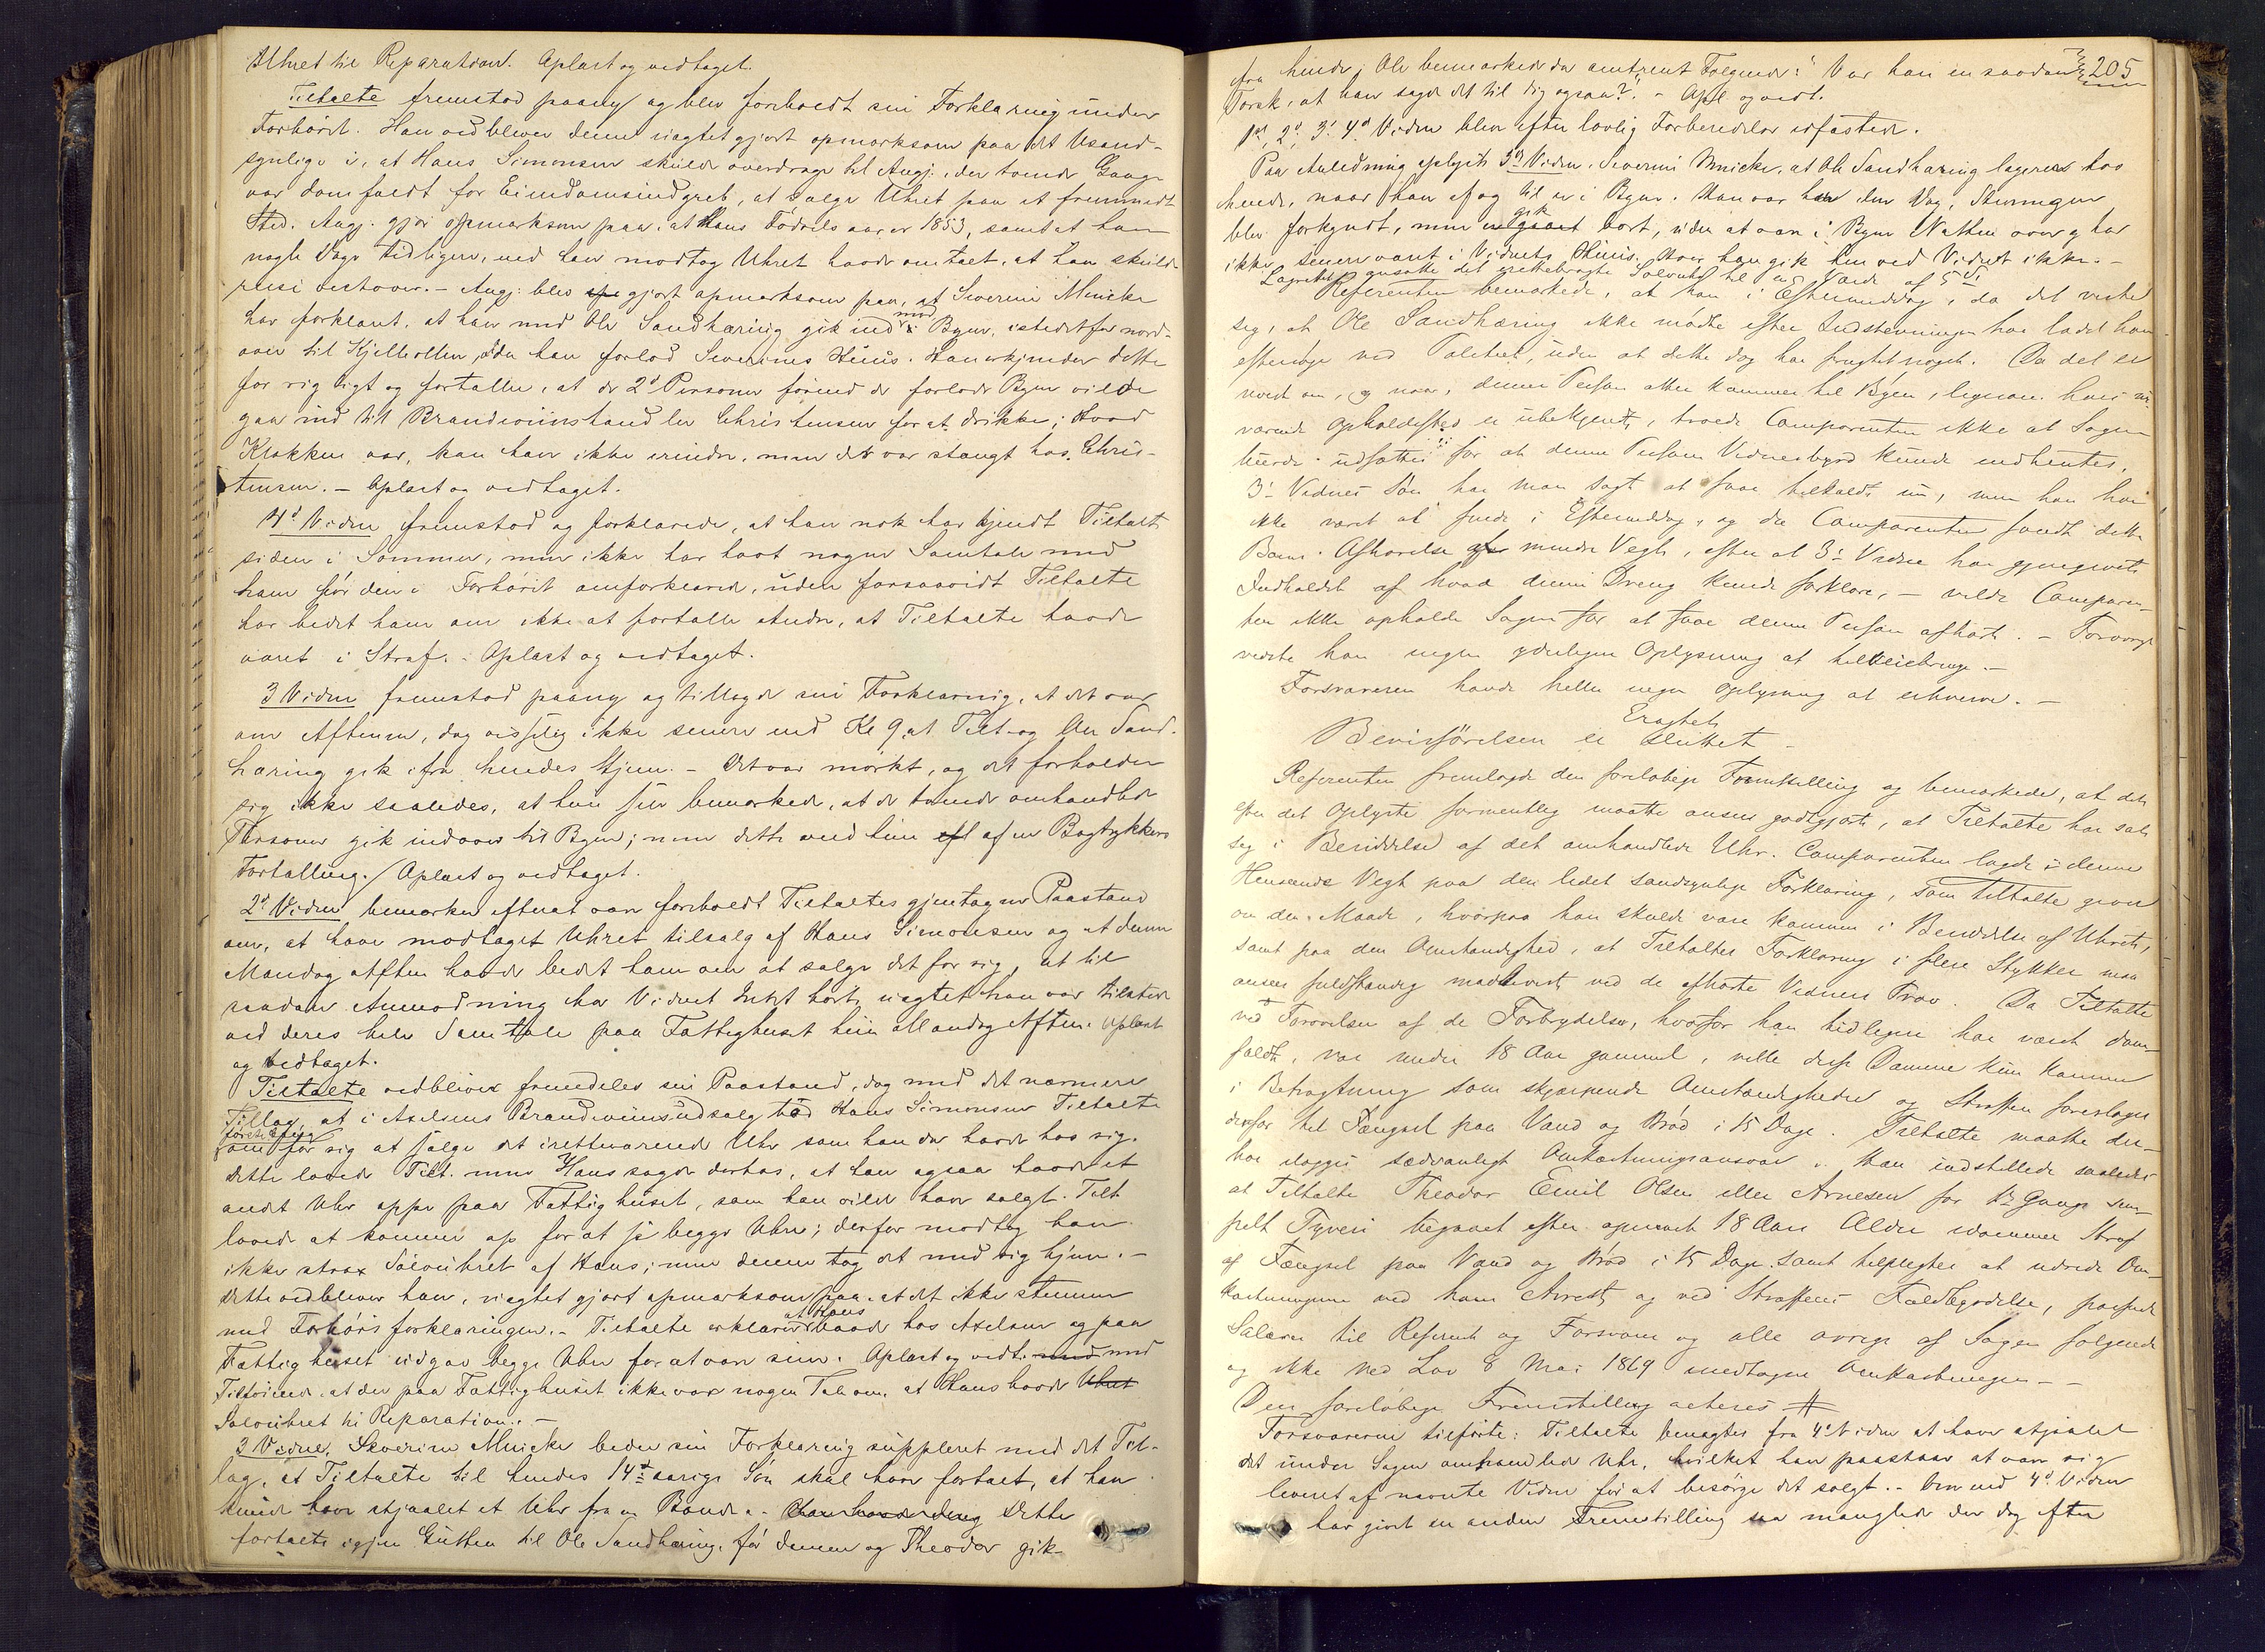 Uhret til Reparation. Oplæst og vedtaget.
Tiltalte fremstod paany og blev foreholdt sin Forklaring under
Forhöret. Han vedbliver denne uagtet gjort opmærksom paa det Usand-
synlige i, at Hans Simonsen skulde overdrage til Angj. der tvende Gange
var domfældt for Eiendomsindgreb, at sælge Uhret paa et fremmedt
Sted. Angj. gjör opmærksom paa, at Hans Födselsaar er 1853, samt at han
nogle Dage tidligere, end han modtog Uhret havde omtalt, at han skulde
reise vestover. – Angj: blev gjort opmærksom paa, at Severine Mnicke
har forklaret, at han med Ole Sandhæring gik ind mod Byen, istedetfor nord-
over til Kjelleollen, da han forlod Severines Huus. Han erkjender dette
for rigtigt og fortæller, at de 2de Personer förend de forlode Byen vilde
gaa ind til Brændeviinshandler Christensen for at drikke; hvad
Klokken var, kan han ikke erindre, men det var stængt hos Chris-
tensen. – Oplæst og vedtaget.
4de Vidne fremstod og forklarede, at han nok har kjendt Tiltalte
siden i Sommer, men ikke har havt nogen Samtale med
ham för den i Forhöret omforklarede, uden forsaavidt Tiltalte
har bedet ham om ikke at fortælle Andre, at Tiltalte havde
været i Straf. – Oplæst og vedtaget.
3 Vidne fremstod paany og tillagde sin Forklaring, at det var
om Aftenen, dog visselig ikke senere end Kl 9, at Tilt. og Ole Sand-
hæring gik ifra hendes Hjem. – Det var mörkt, og det forholder
sig ikke saaledes, at hun selv bemærkede, at de tvende omhandlede
Personer gik indover til Byen; men dette ved hun af en Bogtrykkers
Fortælling. Oplæst og vedtaget.
2det Vidne bemærker efterat være foreholdt Tiltaltes gjentagne Paastand
om, at have modtaget Uhret tilsalg af Hans Simonsen og at denne
Mandag Aften havde bedet ham om at sælge det for sig, at til
saadan Anmodning har Vidnet Intet hört, uagtet han var tilstede
ved deres hele Samtale paa Fattighuset hiin Mandag Aften. Oplæst
og vedtaget.
Tiltalte vedbliver fremdeles sin Paastand, dog med det nærmere
Tillæg, at i Axelsens Brændeviinsudsalg bad Hans Simonsen Tiltalte
om for sig at sælge det iretteværende Uhr som han da havde hos sig.
Dette lovede Tilt. men Hans sagde derhos, at han ogsaa havde et
andet Uhr oppe paa Fattighuset, som han vilde have solgt. Tilt
lovede at komme op for at se begge Uhre; derfor modtog han
ikke strax Sölvuhret af Hans; men denne tog det med sig hjem. –
Dette vedbliver han, uagtet gjort opmærksom paa, at det ikke stemmer
med Forhörsforklaringen. – Tiltalte erklærer at Hans baade hos Axelsen og paa
Fattighuset udgav begge Uhre for at være sine. Oplæst og vedt. med
Tilföiende, at der paa Fattighuset ikke var nogen Tale om, at Hans havde
Sölvuhret til Reparation. –
3 Vidne, Severine Mnicke beder sin Forklaring suppleret med det Til-
læg, at Tiltalte til hendes 14 aarige Sön skal have fortalt, at han
havde stjaalet et Uhr fra en Bonde. – Dette
fortalte igjen Gutten til Ole Sandhæring, för denne og Theodor gik
205
fra hende; Ole bemærkede da omtrent Fölgende: "Var han en saadan
Torsk, at han sagde det til Dig ogsaa?" – Opl. og vedt.
1ste, 2de, 3die, 4de Vidne blev efter lovlig Forberedelse edfæstede.
Paa Anledning oplyste 3die Vidne, Severine Mnicke, at Ole Sandhæring logerer hos
hende, naar han af og til er i Byen. Han var her den Dag, Stevningen
blev forkyndt, men gik bort, uden at være i Byen Natten over og har
ikke senere været i Vidnets Huus. Hvor han gik hen ved Vidnet ikke. –
Lagrettet ansatte det irettebragte Sölvuhr til en Værdi af 5 Sp
Referenten bemærkede, at han i Eftermiddag, da det viste
sig, at Ole Sandhæring ikke mödte efter Indstevningen har ladet ham
eftersöge ved Politiet, uden at dette dog har frugtet noget. Da det er
uvist om, og naar, denne Person atter kommer til Byen, ligesom hans nu-
værende Opholdssted er ubekjendt, troede Comparenten ikke at Sagen
burde udsættes for at denne Persons Vidnesbyrd kunde indhentes.
3die Vidnes Sön har man sögt at faae tilkaldt nu, men han har
ikke været at finde i Eftermiddag, og da Comparenten fandt dette
Barns Afhörelse af mindre Vegt, efter at 3die Vidne har gjengivet
Indholdet af hvad denne Dreng kunde forklare, – vilde Comparen-
ten ikke opholde Sagen for at faae denne Person afhört. – Forövrigt
vidste han ingen yderligere Oplysning at tilveiebringe. –
Forsvareren havde heller ingen Oplysning at erhverve. –
Eragtet
Bevisförelsen er sluttet –
Referenten fremlagde den forelöbige Fremstilling og bemærkede, at det
efter det Oplyste formentlig maatte ansees godtgjort, at Tiltalte har sat
sig i Besiddelse af det omhandlede Uhr. Comparenten lagde i denne
Henseende Vegt paa den lidet sandsynlige Forklaring, som tiltalte giver
om den Maade, hvorpaa han skulde være kommen i Besiddelse af Uhret,
samt paa den Omstændighed, at Tiltaltes Forklaring i flere Stykker maa
ansees fuldstændig modbevist ved de afhörte Vidners Prov. Da Tiltalte
ved Forövelsen af de Forbrydelser, hvorfor han tidligere har været dom-
fældt, var under 18 Aar gammel, ville disse Domme kun komme
i Betragtning som skjærpende Omstændigheder og Straffen foreslaaes
derfor til Fængsel paa Vand og Bröd i 15 Dage. Tiltalte maatte der-
hos ilægges sædvanligt Omkostningsansvar. Han indstillede saaledes
at Tiltalte Theodor Emil Olsen eller Arnesen for 1ste Gang sim-
pelt Tyveri begaaet efter opnaaet 18 Aars Alder idömmes Straf
af Fængsel paa Vand og Bröd i 15 Dage samt tilpligtes at udrede Om-
kostningerne ved hans Arrest og ved Straffens Fuldbyrdelse, passende
Salærer til Referent og Forsvarer og alle övrige af Sagen fölgende
og ikke ved Lov 8 Mai 1869 undtagne Omkostninger – –
Den forelöbige Fremstilling acteres #
Forsvareren tilförte: Tiltalte benægter fra 4de Vidne at have stjaalet
det under Sagen omhandlede Uhr, hvilket han paastaar at være sig
leveret af nævnte Vidne for at besörge det solgt. – Om end 4de Vidne
har givet en anden Fremstilling saa mangler der dog efter